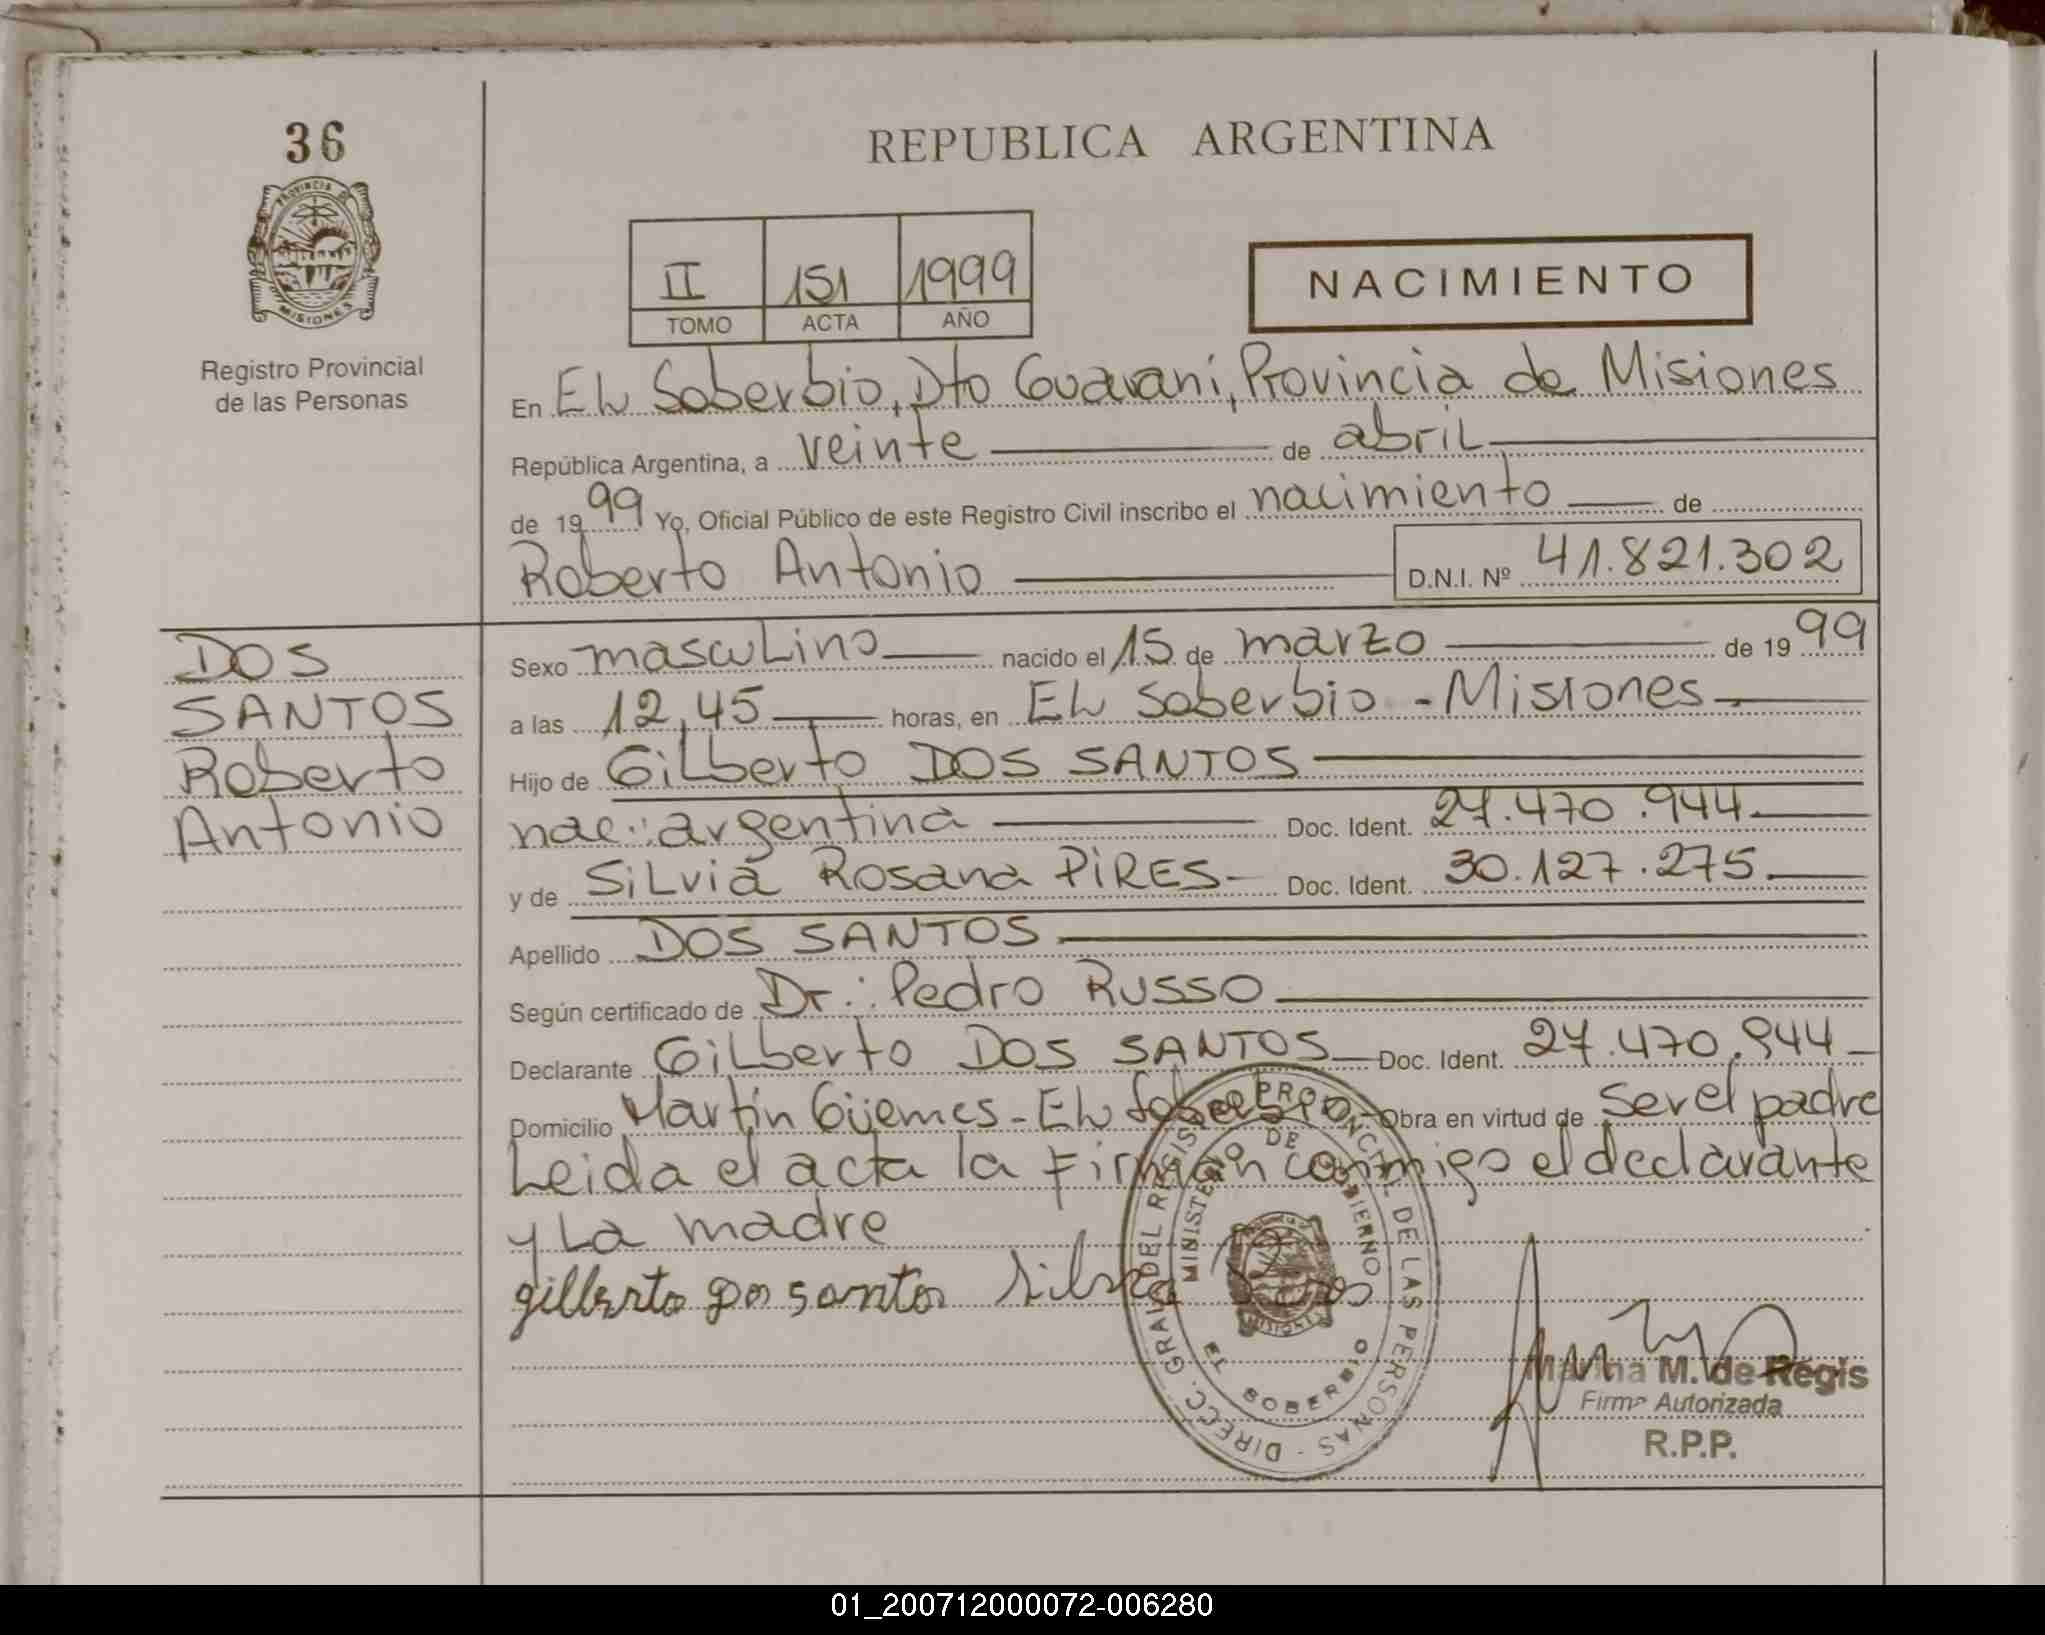 36
PROVINCIA DE
MISIONES
Registro Provincial
de las Personas
REPUBLICA ARGENTINA
II 151 1999
TOMO ACTA AÑO
NACIMIENTO
En EL Soberbio, Dto Guarani, Provincia de Misiones
República Argentina, a veinte de abril
de 1999 Yo, Oficial Público de este Registro Civil inscribo el nacimiento de
Roberto Antonio D.N.I. Nº 41.821.302
DOS
SANTOS
Roberto
Antonio
Sexo masculino nacido el 15 de marzo de 1999
a las 12,45 horas, en EL Soberbio - Misiones
Hijo de Gilberto DOS SANTOS
nac: argentina Doc. Ident. 27.470.944
y de Silvia Rosana PIRES Doc. Ident. 30.127.275
Apellido DOS SANTOS
Según certificado de Dr: Pedro RUSSO
Declarante Gilberto DOS SANTOS Doc. Ident. 27.470.944
Domicilio Martín Güemes - EL Soberbio Obra en virtud de ser el padre
Leida el acta la Firman conmigo el declarante
y La madre
gilberto dos santos Silvia
DIRECC. GRAL. DEL REGIST. PROVINCIAL DE LAS PERSONAS
MINISTERIO DE GOBIERNO
MISIONES
EL SOBERBIO
Marina M. de Regis
Firma Autorizada
R.P.P.
01_200712000072-006280